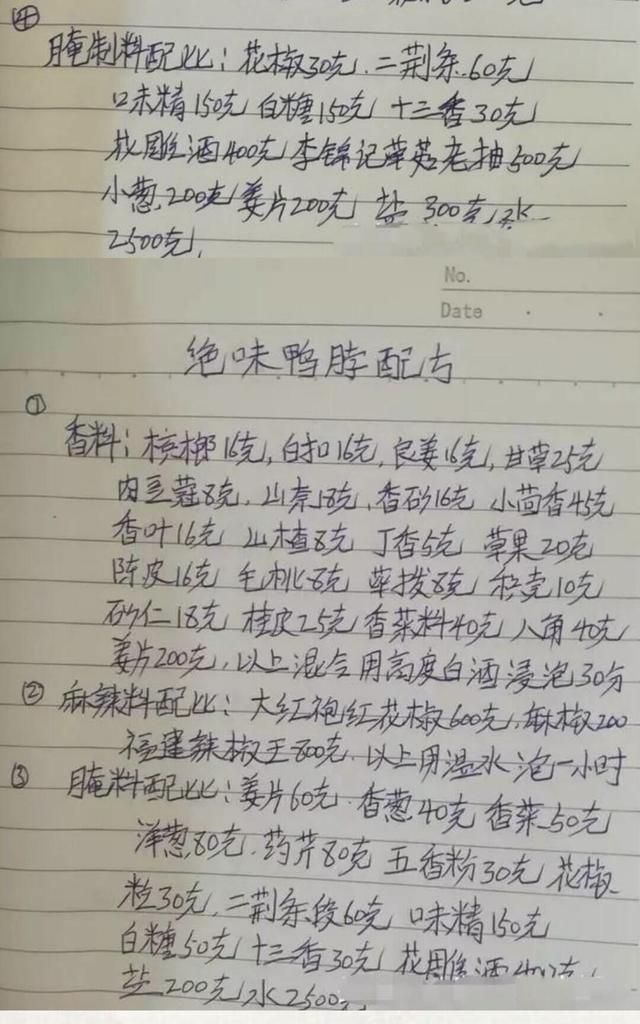 ④
腌制料配比：花椒30克．二荆条．60克
口味精150克 白糖150克 十三香30克
花雕酒400克 李锦记草菇老抽500克
小葱．200克 姜片200克 盐 300克 水
2500克，
No.
Date
绝味鸭脖配方
①
香料：槟榔16克，白扣16克，良姜16克，甘草25克
肉豆蔻8克．山奈18克．香砂16克 小茴香45克
香叶16克 山楂8克 丁香5克 草果20克
陈皮16克 毛桃8克 荜拨8克 枳壳10克
砂仁18克 桂皮25克 香菜料40克 八角40克
姜片200克，以上混合用高度白酒浸泡30分
② 麻辣料配比：大红袍红花椒600克，麻椒200
福建辣椒王800克．以上用温水泡一小时
③ 腌料配比：姜片60克．香葱．40克 香菜．50克
洋葱．80克．药芹80克 五香粉30克 花椒
粒30克．二荆条段60克 口味精150克
白糖50克 十三香30克 花雕酒400克，
盐 200克 水2500